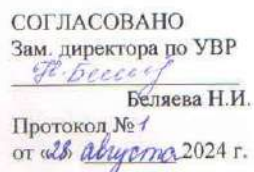 СОГЛАСОВАНО
Зам. директора по УВР
Н.Беляе
Беляева Н.И.
Протокол № 1
от «28» августа 2024 г.